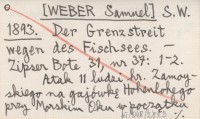 [WEBER Samuel] S.W.
1893. Der Grenzstreit
wegen des Fischsees. —
Zipser Bote 31, nr 37: 1-2.
Atak 11 ludzi hr. Zamoy-
skiego na gajówkę Hohenlohego
przy Morskim Oku w początku